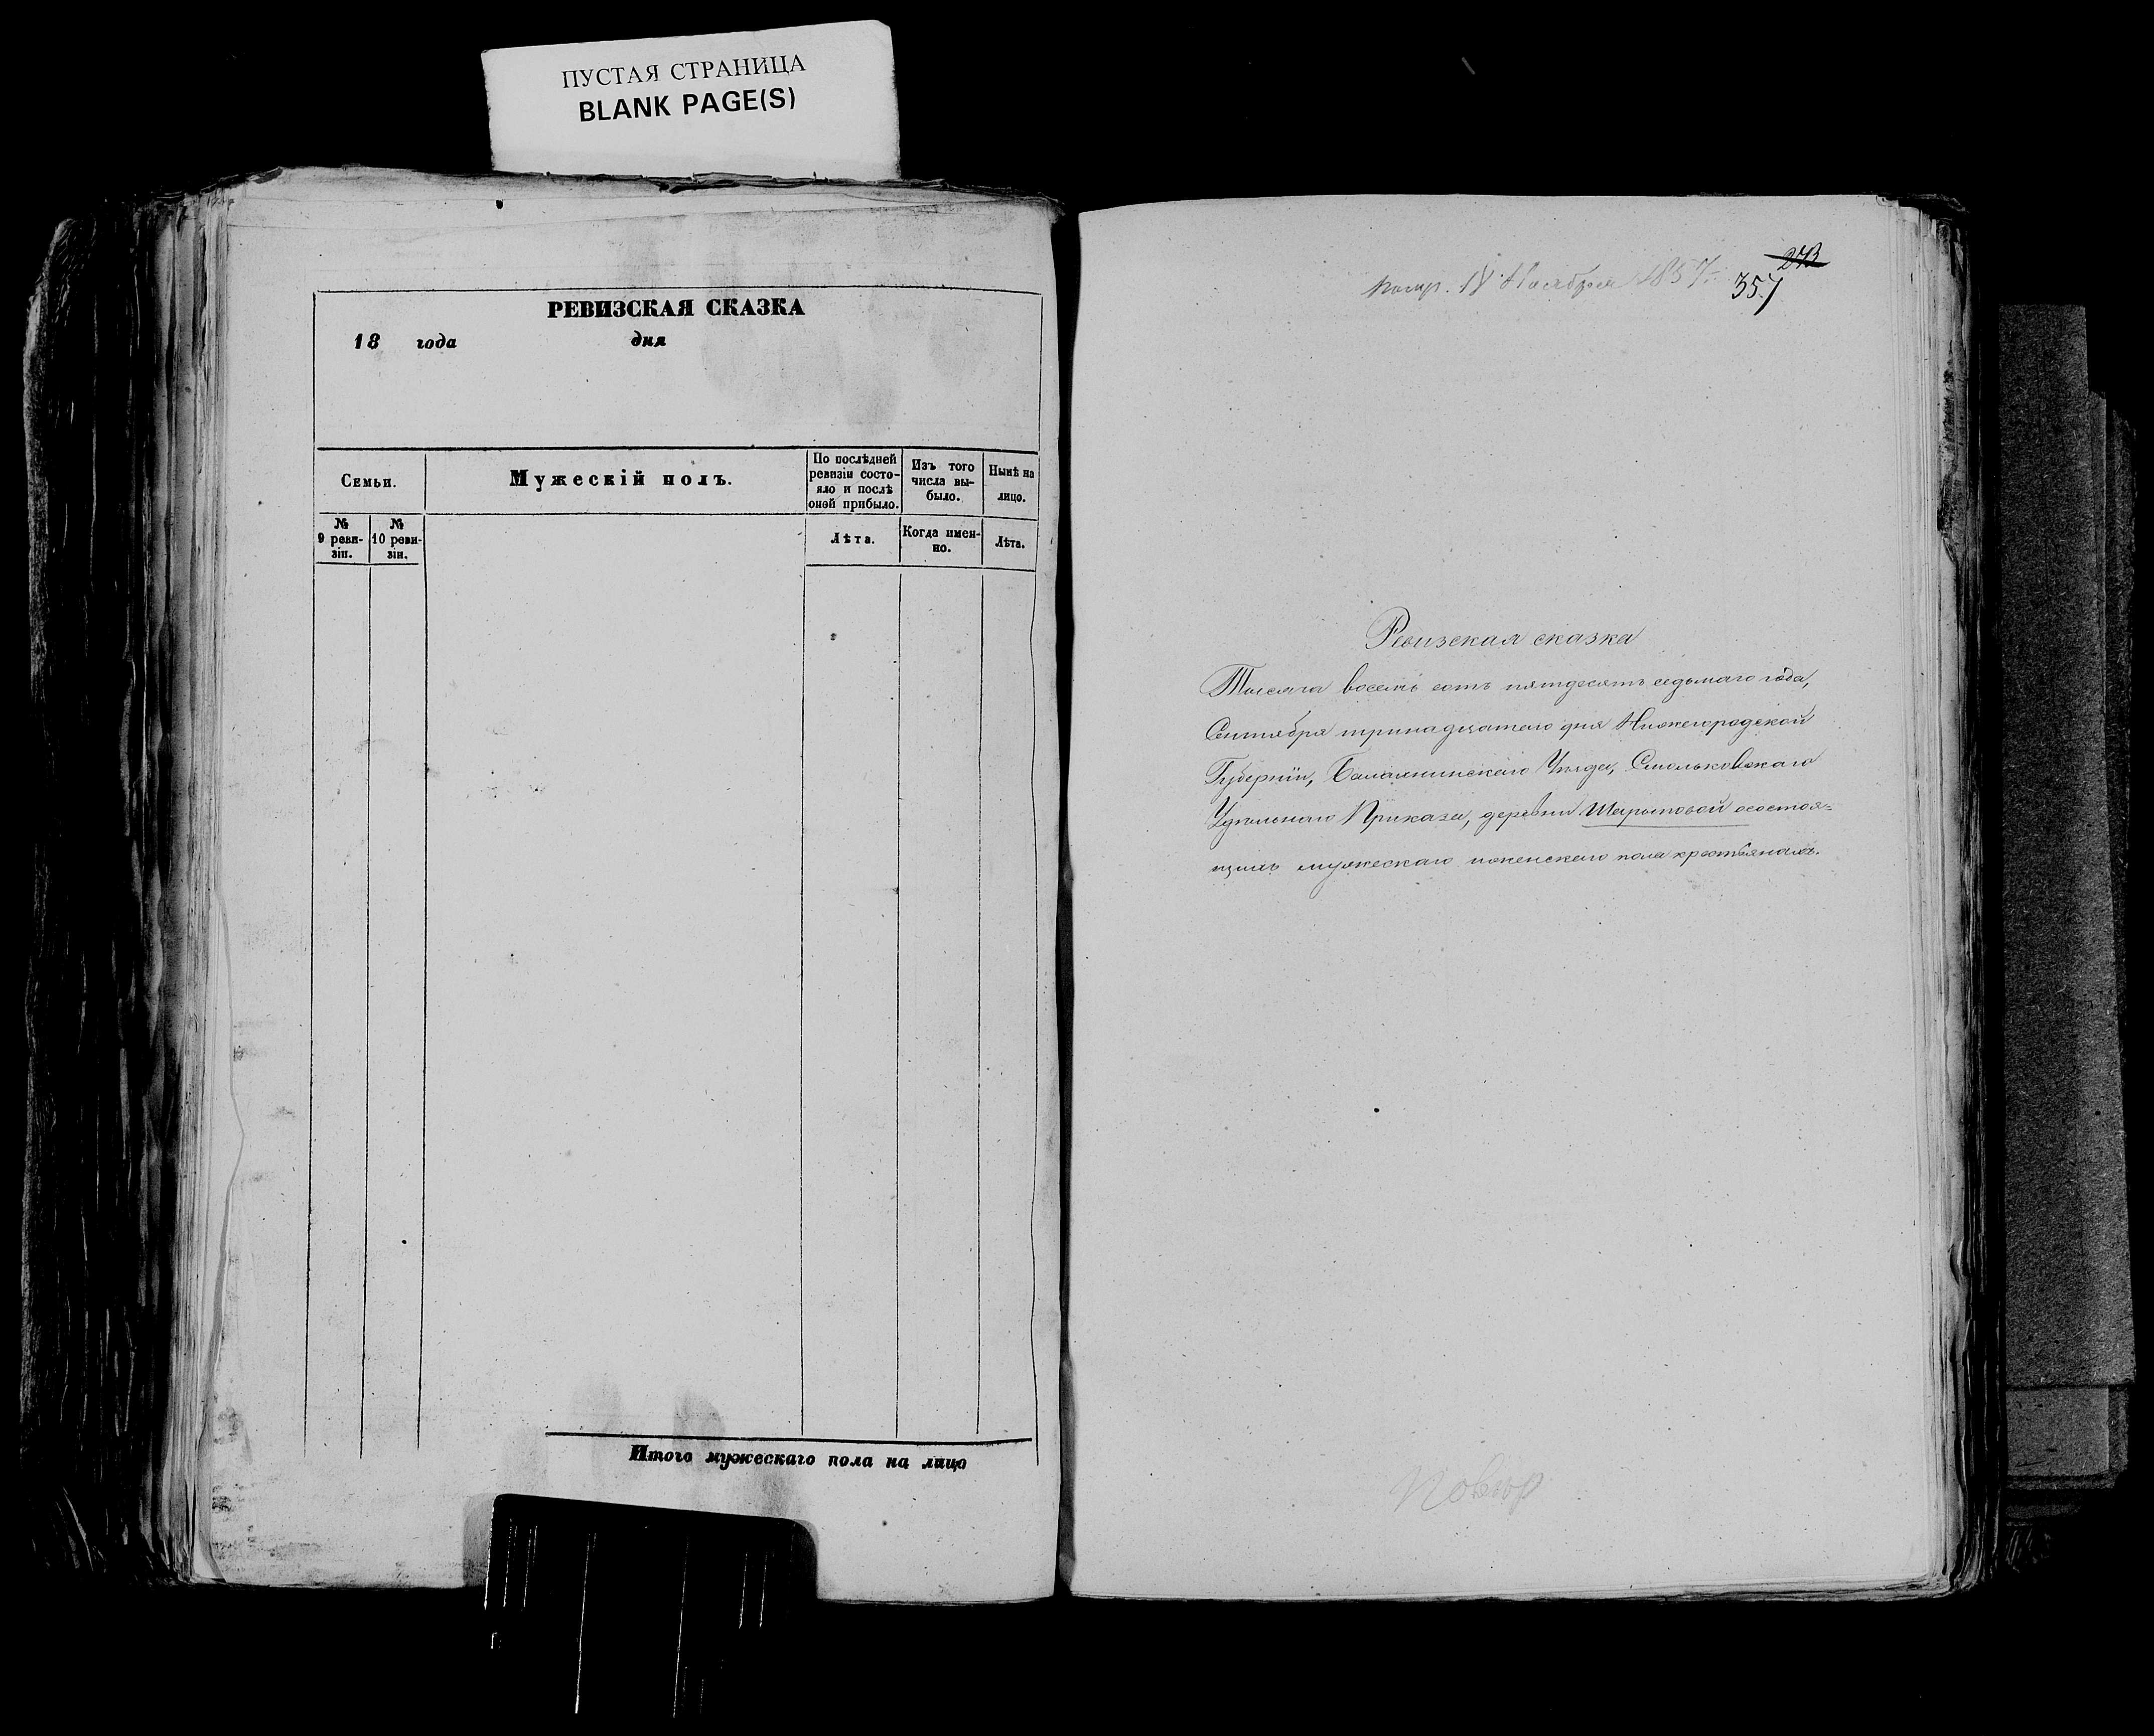 ПУСТАЯ СТРАНИЦА
BLANK PAGE(S)
РЕВИЗСКАЯ СКАЗКА
18 года дня
Семьи.
Мужескій полъ.
По послѣдней
ревизіи состо-
яло и послѣ
оной прибыло.
Изъ того
числа вы-
было.
Нынѣ на
лицо.
№
9 реви-
зіи.
№
10 реви-
зіи.
Лѣта.
Когда имен-
но.
Лѣта.
Итого мужескаго пола на лицо
273
Ноября 1857.
357
Ревизская сказка
Тысяча восемь сотъ пятдесятъ седьмаго года,
Сентября тринадцатаго дня Нижегородской
Губерніи, Балахнинскаго Уѣзда, Смольковскаго
Удѣльнаго Приказа, деревни Шарыповой о состоя=
щихъ мужескаго и женскаго пола крестьянахъ.